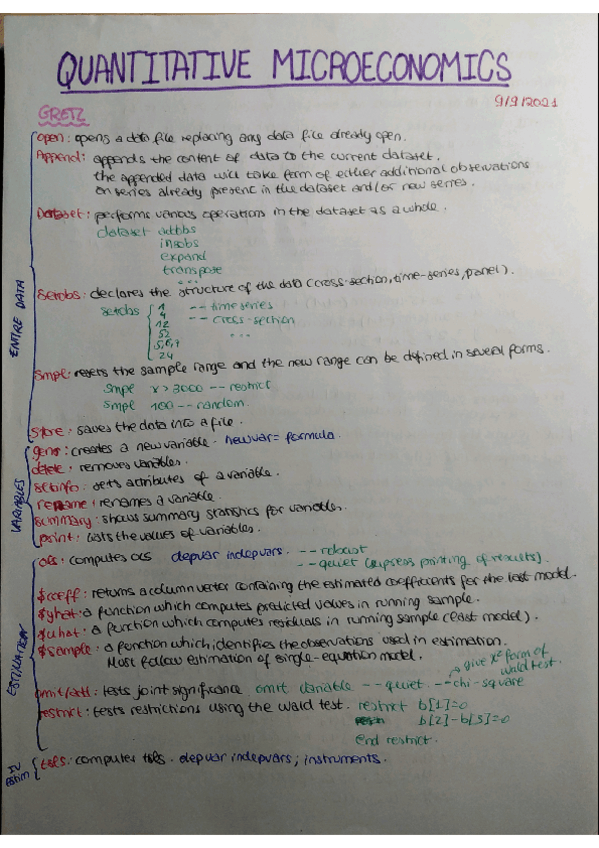 QUANTITATIVE MICROECONOMICS
9/9/2021
GRETL
ENTIRE DATA
open: opens a data file replacing any data file already open.
Append: appends the content of data to the current dataset.
the appended data will take form of either additional observations
on series already present in the dataset and/or new series.
Dataset: performs various operations in the dataset as a whole.
dataset addobs
insobs
expand
transpose
...
Setobs: declares the structure of the data (cross-section, time-series, panel).
setobs { 1 -- time series
4 -- cross-section
12
52 ...
5,6,7
24
Smpl: resets the sample range and the new range can be defined in several forms.
smpl x>3000 -- restrict
smpl 100 -- random.
Store: saves the data into a file.
VARIABLES
genr: creates a new variable. newvar = formula.
delete: removes variables.
setinfo: sets attributes of a variable.
rename: renames a variable.
summary: shows summary statistics for variables.
print: lists the values of variables.
ESTIMATION
ols: computes OLS depvar indepvars. -- robust
-- quiet (supress printing of results).
$coeff: returns a column vector containing the estimated coefficients for the last model.
$yhat: a function which computes predicted values in running sample.
$uhat: a function which computes residuals in running sample (last model).
$sample: a function which identifies the observations used in estimation.
Must follow estimation of single-equation model.
give χ² form of
wald test.
omit/add: tests joint significance omit variable -- quiet. -- chi-square
restrict: tests restrictions using the wald test. restrict b[1]=0
b[2]-b[3]=0
end restrict.
IV Estim
tsls: computes tsls. depvar indepvars; instruments.